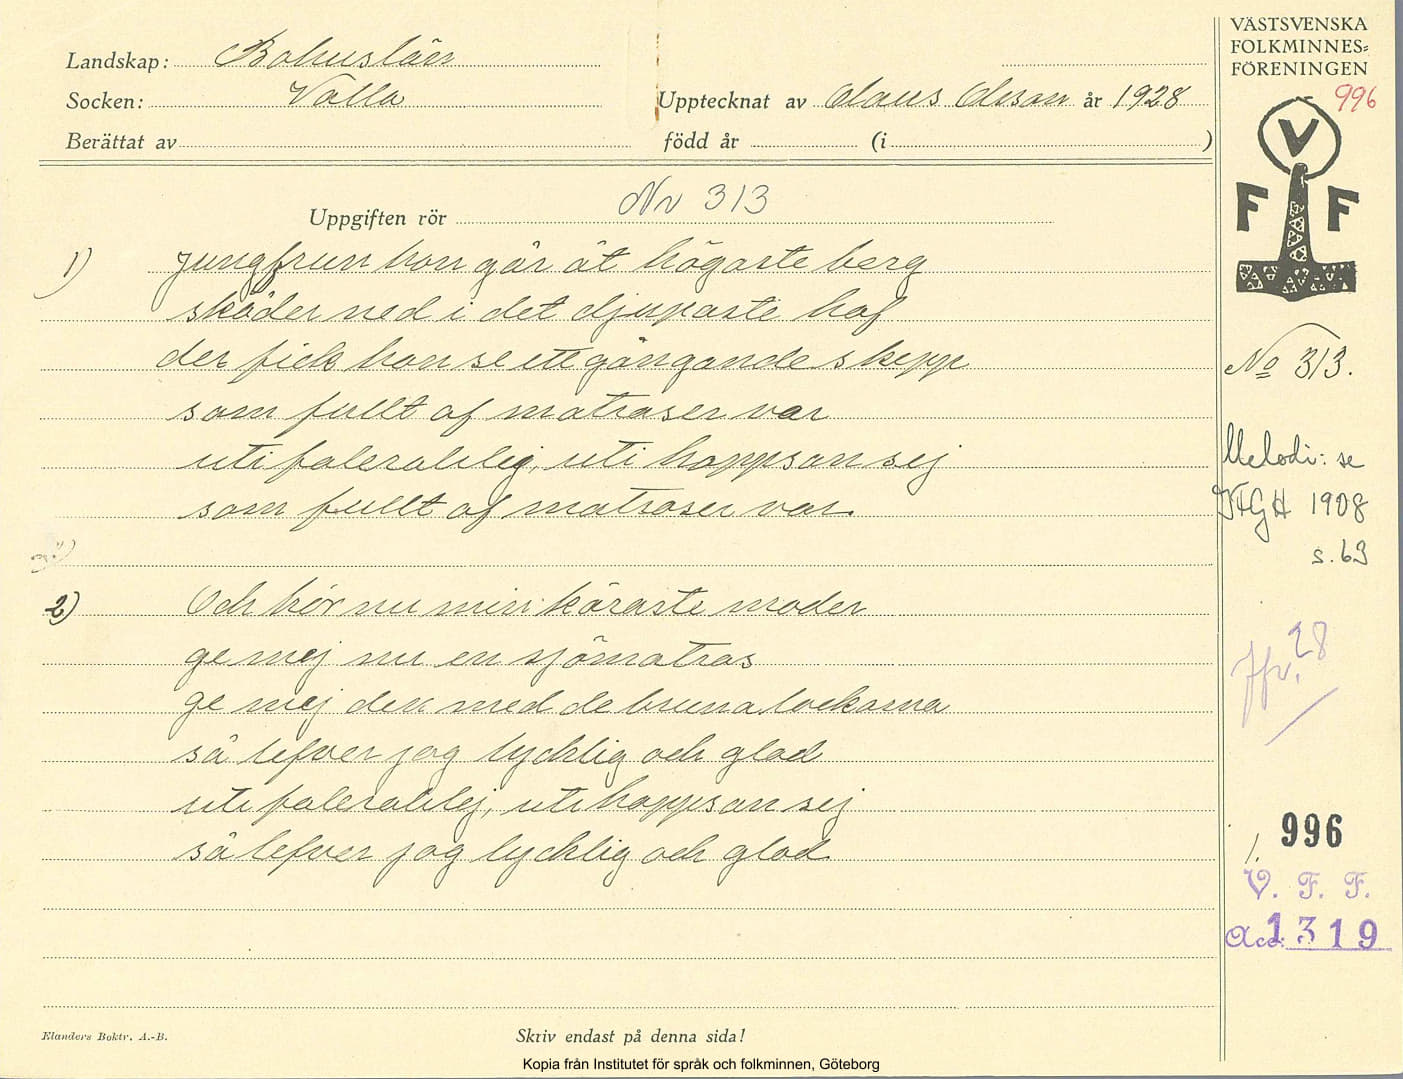 VÄSTSVENSKA
FOLKMINNES-
FÖRENINGEN
996
V
F F
Landskap: Bohuslän
Socken: Valla
Upptecknat av Claus Olsson år 1928
Berättat av
född år (i )
Uppgiften rör Nr 313
1) Jungfrun hon går åt högaste berg
skåder ned i det djupaste haf
der fick hon se ett gångande skepp
som fullt af matraser var
uti faleralilej, uti hoppsan sej
som fullt af matraser var.
2) Och hör nu min käraste moder
ge mej nu en sjömatras
ge mej den med de bruna lockarna
så lefver jag lycklig och glad
uti faleralilej, uti hoppsan sej
så lefver jag lycklig och glad
No 313.
Melodi: se
VFGH 1908
s. 63
Jfr. 28
1. 996
V. F. F.
Acc. 1319
Elanders Boktr. A.-B.
Skriv endast på denna sida!
Kopia från Institutet för språk och folkminnen, Göteborg